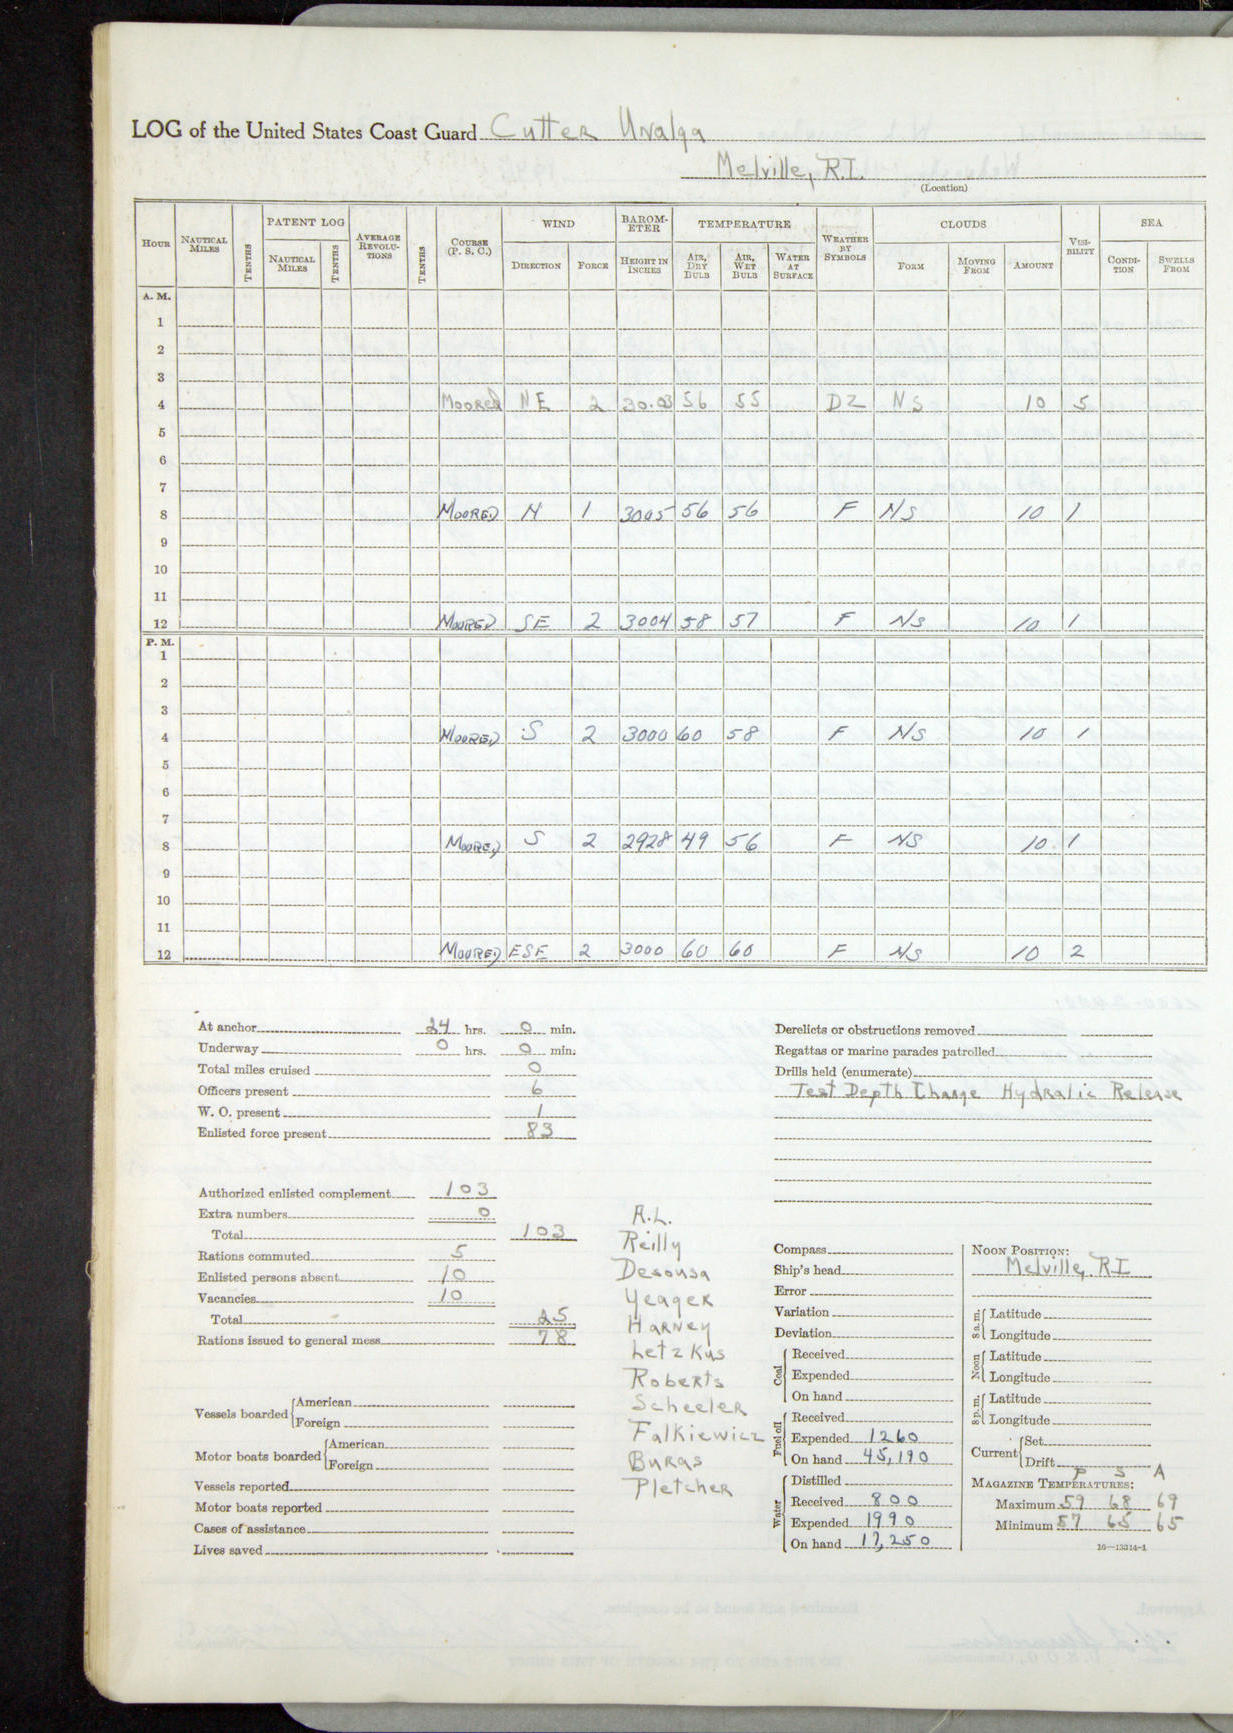 LOG of the United States Coast Guard Cutter Unalga
Melville, R.I.
(Location)
HOUR NAUTICAL MILES TENTHS PATENT LOG NAUTICAL MILES TENTHS AVERAGE REVOLU-TIONS TENTHS COURSE (P. S. C.) WIND DIRECTION FORCE BAROM-ETER HEIGHT IN INCHES TEMPERATURE AIR, DRY BULB AIR, WET BULB WATER AT SURFACE WEATHER BY SYMBOLS CLOUDS FORM MOVING FROM AMOUNT VISI-BILITY SEA CONDI-TION SWELLS FROM
A. M.
1
2
3
4 Moored NE 2 30.03 56 55 DZ NS 10 5
5
6
7
8 MOORED N 1 3005 56 56 F NS 10 1
9
10
11
12 MOORED SE 2 3004 58 57 F NS 10 1
P. M.
1
2
3
4 MOORED S 2 3000 60 58 F NS 10 1
5
6
7
8 MOORED S 2 2928 49 56 F NS 10 1
9
10
11
12 MOORED ESE 2 3000 60 60 F NS 10 2
At anchor 24 hrs. 0 min.
Underway 0 hrs. 0 min.
Total miles cruised 0
Officers present 6
W. O. present 1
Enlisted force present 83
Authorized enlisted complement 103
Extra numbers 0
Total 103
Rations commuted 5
Enlisted persons absent 10
Vacancies 10
Total 25
Rations issued to general mess 78
Vessels boarded American
Foreign
Motor boats boarded American
Foreign
Vessels reported
Motor boats reported
Cases of assistance
Lives saved
A.L.
Reilly
Desousa
Yeager
Harney
Letzkus
Roberts
Scheeler
Falkiewicz
Buras
Pletcher
Derelicts or obstructions removed
Regattas or marine parades patrolled
Drills held (enumerate)
Test Depth Charge Hydralic Release
Compass
Ship's head
Error
Variation
Deviation
Coal Received
Expended
On hand
Fuel oil Received
Expended 1260
On hand 45,190
Water Distilled
Received 800
Expended 1990
On hand 17,250
NOON POSITION:
Melville, RI
8 a.m. Latitude
Longitude
Noon Latitude
Longitude
8 p.m. Latitude
Longitude
Current Set
Drift
P S A
MAGAZINE TEMPERATURES:
Maximum 59 68 69
Minimum 57 65 65
16—13314-1